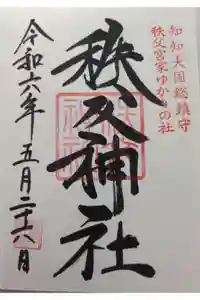 知知夫国総鎮守
秩父宮家ゆかりの社
秩父神社
令和六年五月二十八日